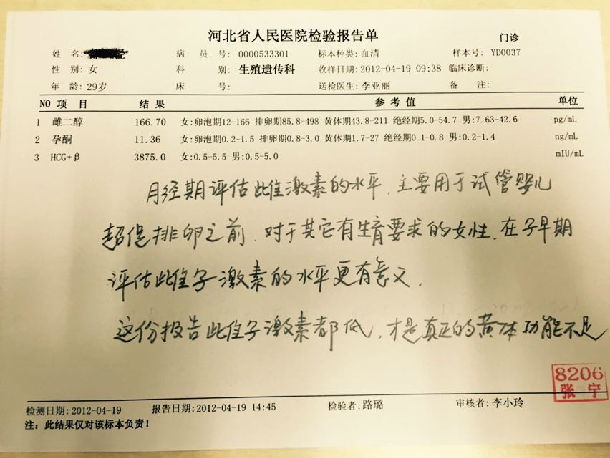 河北省人民医院检验报告单 门诊
姓 名: 病 员 号: 0000533301 标本种类: 血清 样本号: YD0037
性 别: 女 科 别: 生殖遗传科 收样日期: 2012-04-19 09:38 临床诊断:
年 龄: 29岁 床 号: 送检医生: 李亚丽 备 注:
NO 项 目 结 果 参 考 值 单位
1 雌二醇 166.70 女:卵泡期12-166 排卵期85.8-498 黄体期43.8-211 绝经期5.0-54.7 男:7.63-42.6 pg/mL
2 孕酮 11.36 女:卵泡期0.2-1.5 排卵期0.8-3.0 黄体期1.7-27 绝经期0.1-0.8 男:0.2-1.4 ng/mL
3 HCG+β 3875.0 女:0.5-5.5 男:0.5-5.0 mIU/mL
月经期评估雌激素的水平,主要用于试管婴儿
超促排卵之前,对于其它有生育要求的女性,在孕早期
评估雌孕激素的水平更有意义.
这份报告雌孕激素都低,才是真正的黄体功能不足
8206
张 宁
检测日期: 2012-04-19 报告日期: 2012-04-19 14:45 检验者: 路璐 审核者: 李小玲
注: 此结果仅对该标本负责!